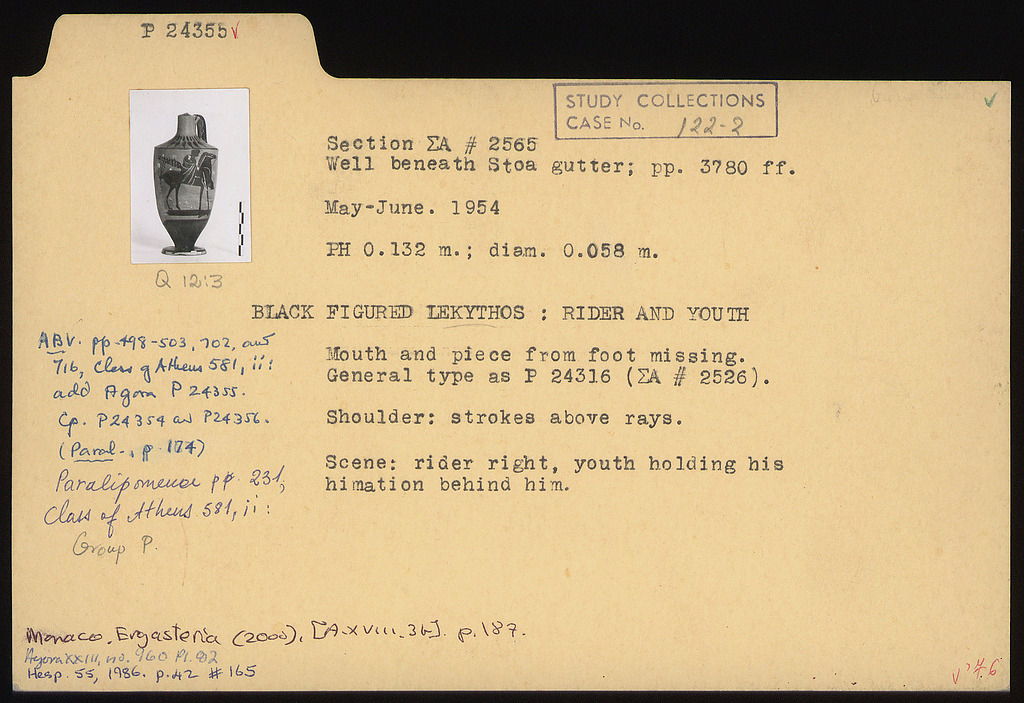 P 24355 ✓
STUDY COLLECTIONS
CASE No. 122-2
✓
Section ΣΑ # 2565
Well beneath Stoa gutter; pp. 3780 ff.
May-June. 1954
PH 0.132 m.; diam. 0.058 m.
Q 12:3
BLACK FIGURED LEKYTHOS : RIDER AND YOUTH
Mouth and piece from foot missing.
General type as P 24316 (ΣΑ # 2526).
Shoulder: strokes above rays.
Scene: rider right, youth holding his
himation behind him.
ABV. pp. 498-503, 702, and
716, Class of Athens 581, ii:
add Agora P 24355.
Cp. P24354 and P24356.
(Paral., p. 174)
Paralipomena pp. 231,
Class of Athens 581, ii:
Group P.
Monaco, Ergasteria (2000), p. 187.
Agora XXIII, no. 960 Pl.
Hesp. 55, 1986. p. 42 # 165